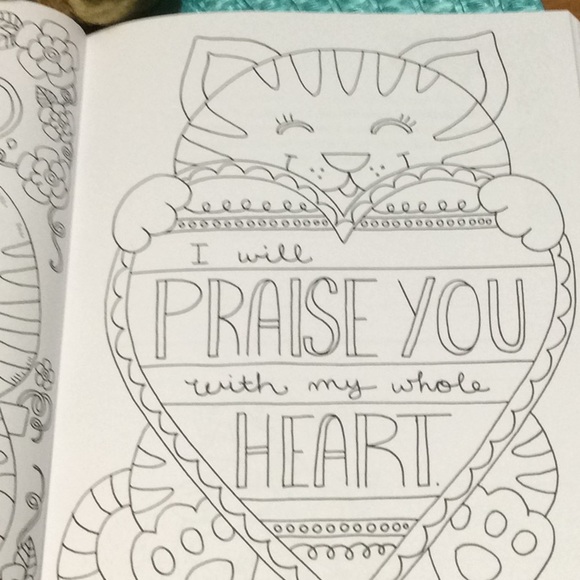 I will
PRAISE YOU
with my whole
HEART.